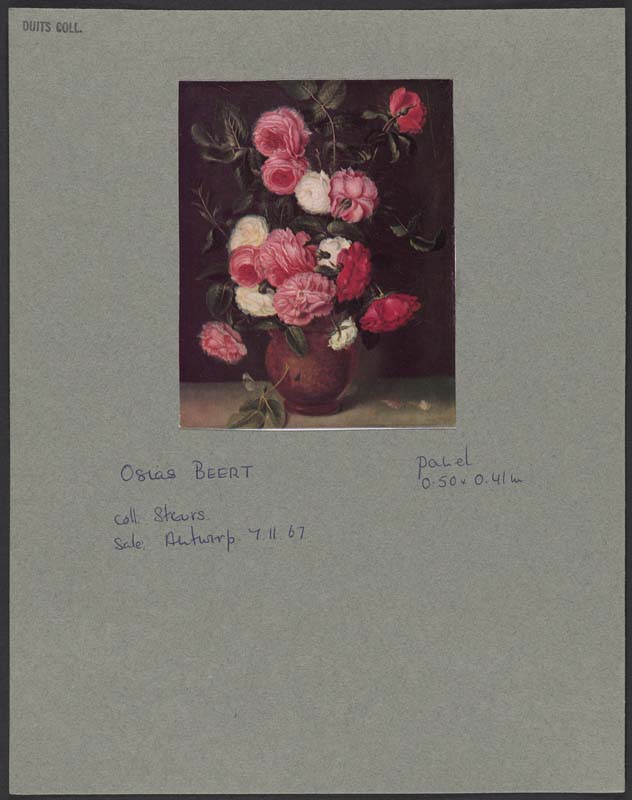 DUITS COLL.
Osias BEERT
panel
0.50 x 0.41 m
coll. Steurs.
Sale, Antwerp 7.11.67